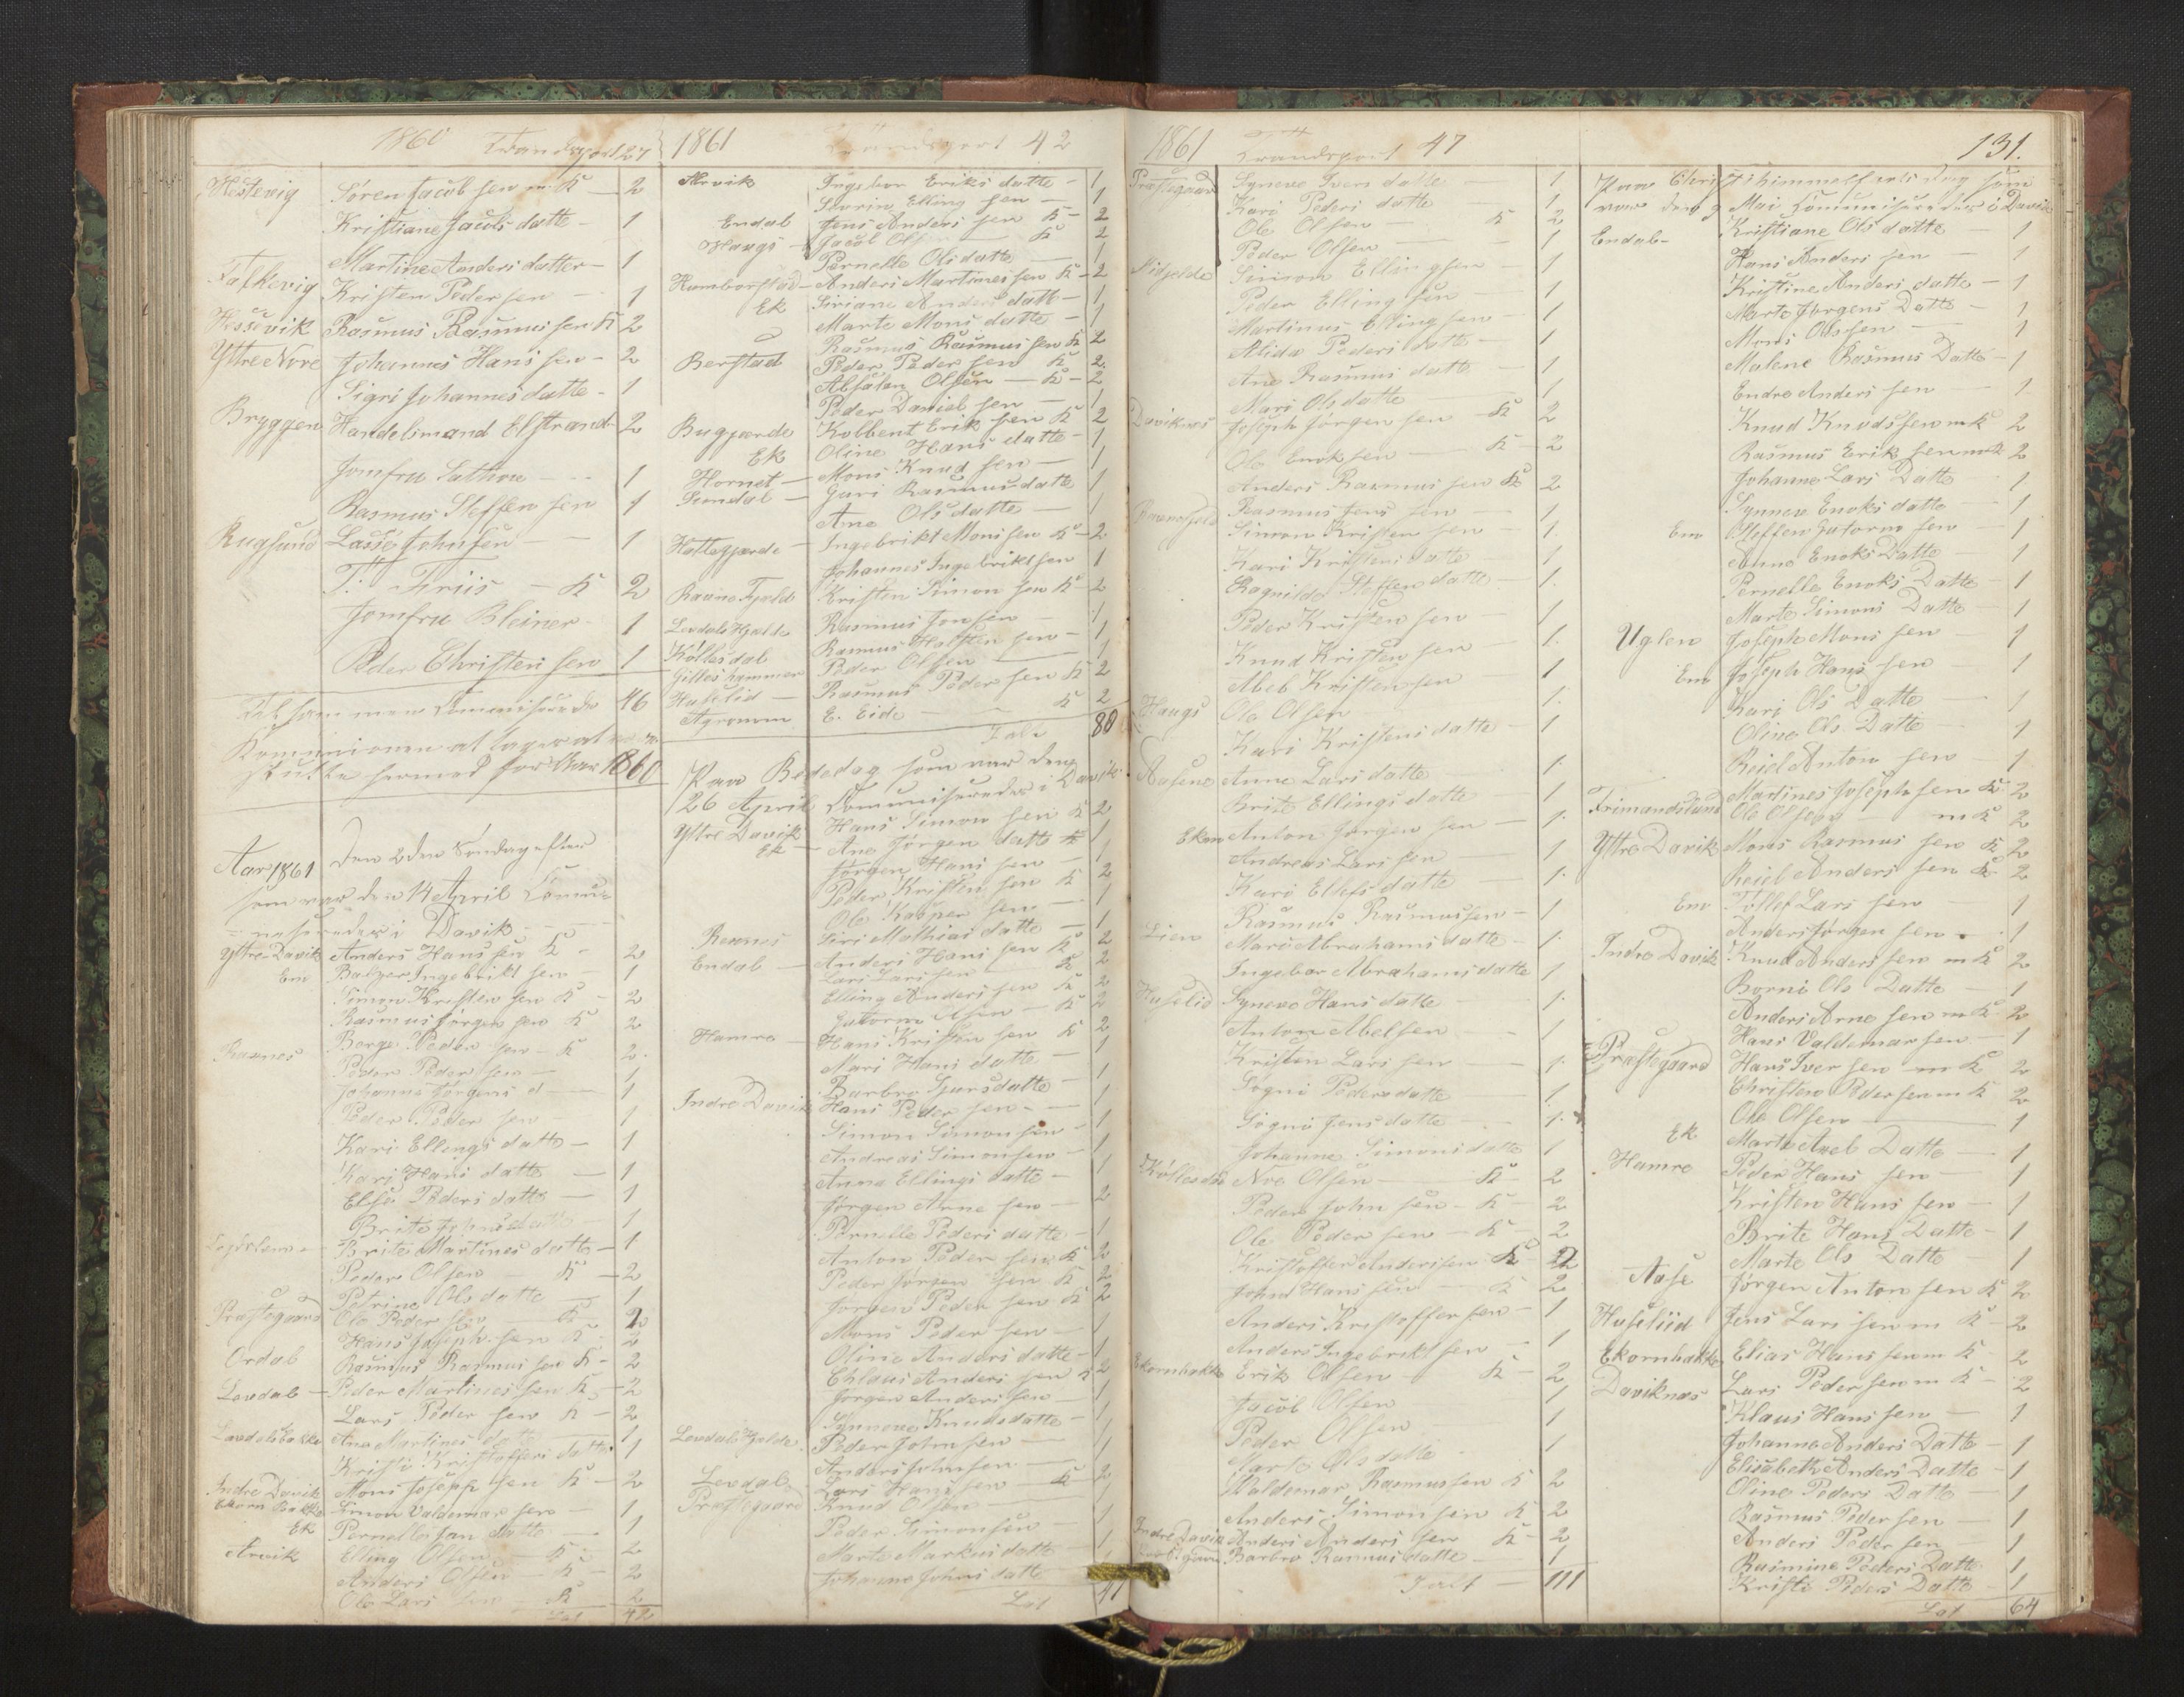 1860 Trandsport 27
Hestevig Søren Jacob sen m K 2
Kristiane Jacobs datte 1
Martine Anders datter 1
Falkevig Kristen Peder sen 1
Hessevik Rasmus Rasmus sen K 2
Yttre Nore Johannes Hans sen 2
Sigri Johannes datte 1
Bryggen Handelsmand Elstrand 2
Jomfru 1
Rasmus Steffen sen 1
Rugsund Lasse John sen 1
T. Friis K 2
Jomfru Bleiner 1
Peder Christen sen 1
Tilsammen 46
Kommunionen at
hermed for Aar 1860
Aar 1861 Den 2den Søndag efter
som var den 14 April
i Davik
Yttre Davik Anders Hans sen K 2
Em Balzer Ingebrikt sen 1
Simon Kristen sen K 2
Rasmus Jørgen sen K 2
Rusnes Børge Peder sen K 2
Peder Peder sen 1
Johanna Jørgens d 1
Peder Peder sen 1
Kari Ellings datte 1
Kari Hans datte 1
Else Peders datte 1
Brite Johns datte 1
Brite Martines datte 1
Peder Olsen K 2
Petrine Ols datte 1
Præstegaard Ole Peder sen K 2
Hans Joseph sen K 2
Ordal Rasmus Rasmus sen K 2
Levdal Peder Martines sen K 2
Lars Peder sen K 2
Levdalsbakke Ane Martines datte 1
Kristi Kristoffers datte 1
Indre Davik Mons Joseph sen K 2
Ekorn Bakke Simon Valdemar sen 1
Ek Pernelle datte 1
Arvik Elling Olsen K 2
Anders Olsen K 2
Ole Lars sen K 2
Lat 42
1861 Trandsport 42
Arvik Ingebor Eriks datte 1
Severin Elling sen 1
Endal Jens Anders sen K 2
Haugs Jacob Olsen K 2
Pernelle Ols datte 1
Humborstad Anders Martines sen K 2
Ek Siriane Anders datte 1
Marte Mons datte 1
Rasmus Rasmus sen K 2
Berstad Peder Peder sen K 2
Absalon Olsen K 2
Peder Daniel sen 1
Bugjerde Kolbent Erik sen K 2
Ek Oline Hans datte 1
Hornet Mons Knud sen 1
Guri Rasmus datte 1
Ane Ols datte 1
Hottegjerde Ingebrikt Mons sen K 2
Johannes Ingebrikt sen 1
Ravnefjeld Kristen Simon sen K 2
Levdals Hjelde Rasmus Jonsen 1
Køllesdal Rasmus sen 1
Gilleshammer Peder Olsen 1
Huselid Rasmus Peder sen K 2
Agronom E. Eide K 2
Talt 80
Paa Bededag som var den
26 April Communiserede i Davik
Yttre Davik Hans Simon sen K 2
Ek Ane Jørgen datte 1
Jørgen Hans sen 1
Peder Kristen sen K 2
Ole Kasper sen 1
Rusnes Siri Mathias datte 1
Endal Anders Hans sen K 2
Lars Lars sen K 2
Elling Anders sen K 2
Gutorm Olsen K 2
Hamre Hans Kristen sen K 2
Mari Hans datte 1
Barbro datte 1
Indre Davik Hans Peder sen 1
Simon Simon sen 1
Andreas Simon sen 1
Anna Ellings datte 1
Jørgen Arne sen 2
Pernelle Peders datte 1
Anton Peder sen K 2
Peder Jørgen sen K 2
Jørgen Peder sen K 2
Mons Peder sen 1
Oline Anders datte 1
Anders sen K 2
Jørgen Anders sen 1
Synneve Knuds datte 1
Levdals Hjelde Peder John sen 1
Anders John sen 1
Levdal Lars Hans sen K 2
Præstegaard Knud Olsen 1
Peder Simon sen 1
Marte Markus datte 1
Johanne Johns datte
Lat 47
1861 Trandsport 47
Præstegaard Syneve Ivers datte 1
Kari Peders datte 1
Ole Olsen K 2
Peder Olsen 1
Simon Elling sen 1
Peder Elling sen 1
Martinus Elling sen 1
Alida Peders datte 1
Ane Rasmus datte 1
Mari Ols datte 1
Daviknes Joseph Jørgen sen K 2
Ole Enok sen K 2
Anders Rasmus sen K 2
Ravnefjeld Rasmus Jens sen 1
Simon Kristen sen 1
Kari Kristens datte 1
Ragnilde Steffens datte 1
Peder Kristen sen 1
Knud Kristen sen 1
Abel Kristen sen 1
Haugs Ole Olsen 1
Kari Kristens datte 1
Aasene Anne Lars datte 1
Brite Ellings datte 1
Ekorn Anton Jørgen sen 1
Andreas Lars sen 1
Kari datte 1
Rasmus Rasmus sen 1
Lien Mari Abrahams datte 1
Ingebor Abrahams datte 1
Huselid Syneve Hans datte 1
Anton Abel sen 1
Kristen Lars sen 1
Sogni Peders datte 1
Sogni Jens datte 1
Johanne Simons datte 1
Køllesdal Olsen K 2
Peder John sen K 2
Ole Peder sen K 2
Kristoffer Anders sen K 2
John Hans sen K 2
Anders Kristoffer sen 1
Anders Ingebrikt sen 1
Ekornbakke Erik Olsen K 2
Jacob Olsen 1
Peder Olsen 1
Marte Ols datte 1
Waldemar Rasmus sen K 2
Anders Simon sen K 2
Indre Davik Anders Anders sen K 2
Barbro Rasmus datte 1
Talt 111
131.
Paa Christi himmelfarts Dag som
var den 9 Mai Communiserede i Davik
Endal Kristiane Ols datte 1
Hans Anders sen 1
Kristine Anders datte 1
Marte Jørgens Datte 1
Mons Olssen 1
Malene Rasmus Datte 1
Endre Anders sen 1
Knud Knuds sen m K 2
Rasmus Erik sen m K 2
Johanne Lars Datte 1
Synneve Enoks datte 1
Em Steffen Gutorm sen 1
Anne Enoks Datte 1
Pernelle Enoks Datte 1
Marte Simons Datte 1
Uglen Joseph Mons sen 1
Em Joseph Hans sen 1
Kari Ols Datte 1
Oline Ols Datte 1
Reiel Anton sen 1
Frimandslund Martines Joseph sen K 2
Ole Olsen m K 2
Yttre Davik Mons Rasmus sen K 2
Reiel Anders sen K 2
Em Tollef Lars sen 1
Anders Jørgen sen 1
Indre Davik Knud Anders sen m K 2
Borni Ols Datte 1
Anders Arne sen m K 2
Hans Valdemar sen 1
Præstegaard Hans Iver sen m K 2
Christen Peder sen m K 2
Ole Olsen 1
Ek Marte Axel Datte 1
Hamre Peder Hans sen 1
Kristen Hans sen 1
Brite Hans Datte 1
Marte Ols Datte 1
Aase Jørgen Anton sen K 2
Huseliid Jens Lars sen m K 2
Ekornbakke Elias Hans sen m K 2
Daviknæs Lars Peder sen m K 2
Klaus Hans sen 1
Johanne Anders Datte 1
Elisabeth Anders Datte 1
Oline Peders Datte 1
Rasmus Peder sen 1
Anders Peder sen 1
Rasmine Peders Datte 1
Kristi Peders Datte 1
Lat 64